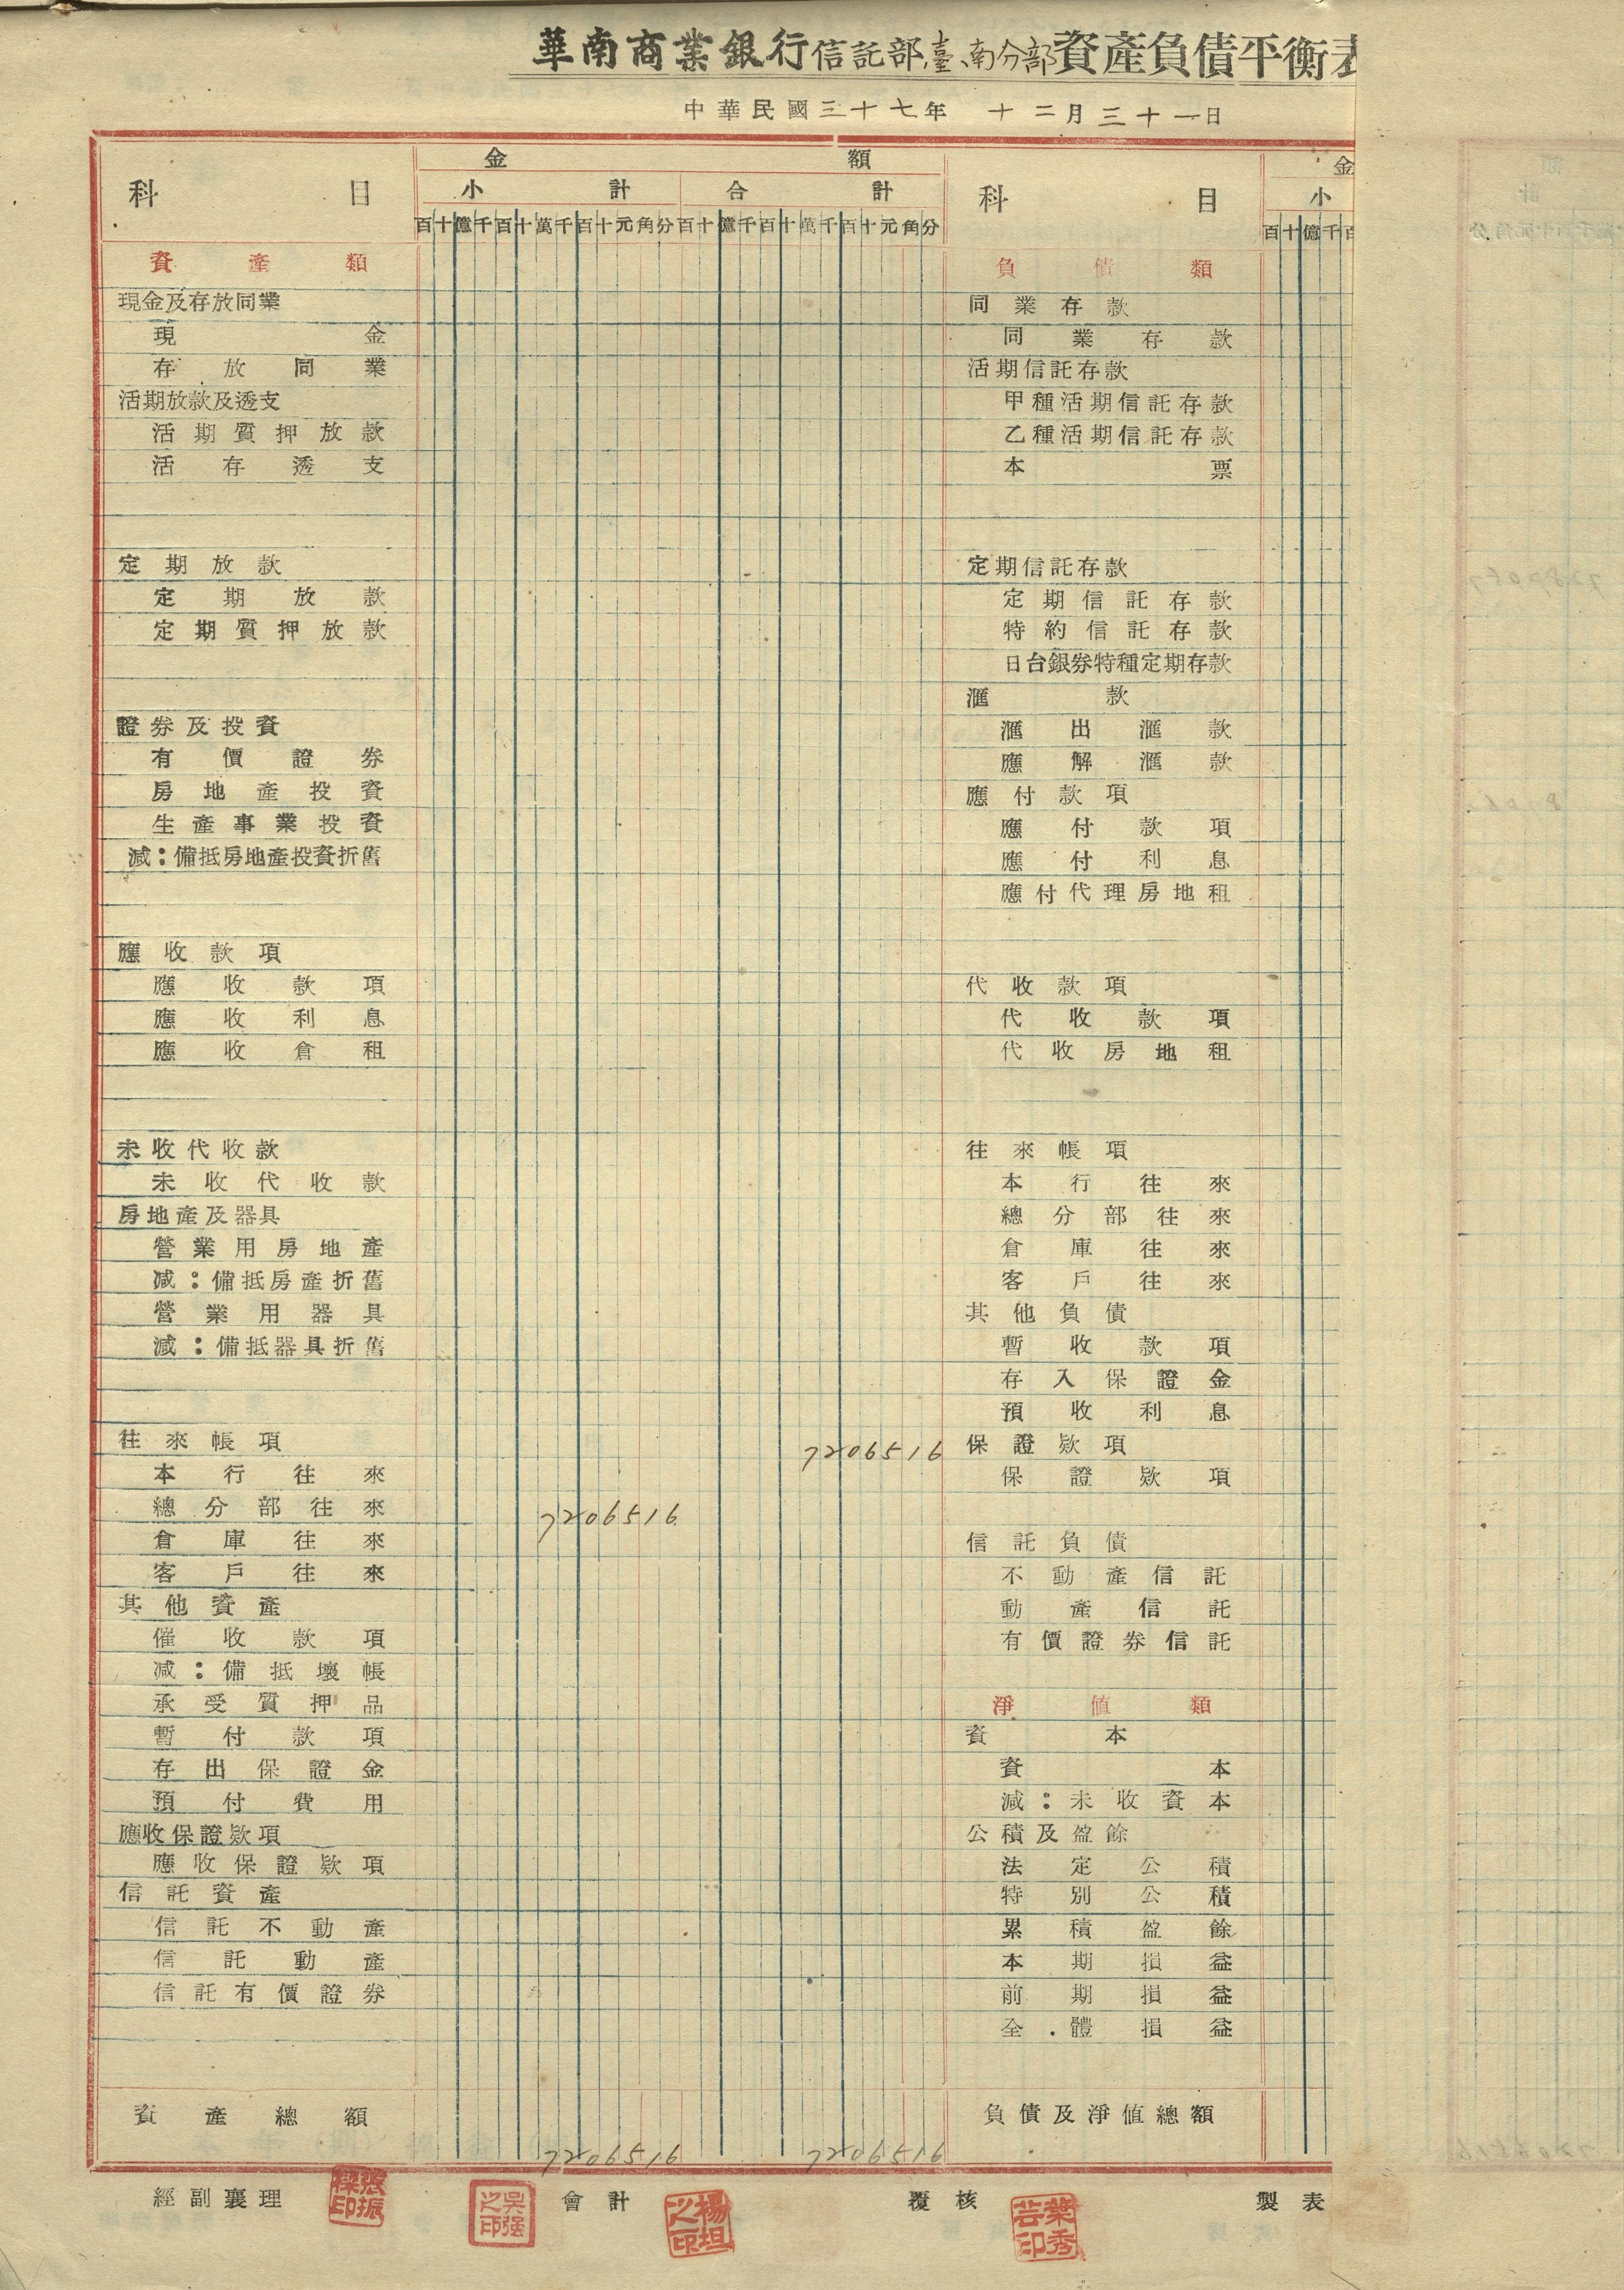 華南商業銀行信託部臺南分部資產負債平衡表
中華民國三十七年 十二月三十一日
科目 金額 科目 金
小計 合計 小
百十億千百十萬千百十元角分 百十億千百十萬千百十元角分 百十億千百
資產類 負債類
現金及存放同業 同業存款
現金 同業存款
存放同業 活期信託存款
活期放款及透支 甲種活期信託存款
活期質押放款 乙種活期信託存款
活存透支 本票
定期放款 定期信託存款
定期放款 定期信託存款
定期質押放款 特約信託存款
日台銀券特種定期存款
滙款
證券及投資 滙出滙款
有價證券 應解滙款
房地產投資 應付款項
生產事業投資 應付款項
減：備抵房地產投資折舊 應付利息
應付代理房地租
應收款項
應收款項 代收款項
應收利息 代收款項
應收倉租 代收房地租
未收代收款 往來帳項
未收代收款 本行往來
房地產及器具 總分部往來
營業用房地產 倉庫往來
減：備抵房產折舊 客戶往來
營業用器具 其他負債
減：備抵器具折舊 暫收款項
存入保證金
預收利息
往來帳項 7206516 保證欵項
本行往來 保證欵項
總分部往來 7206516
倉庫往來 信託負債
客戶往來 不動產信託
其他資產 動產信託
催收款項 有價證券信託
減：備抵壞帳
承受質押品 淨值類
暫付款項 資本
存出保證金 資本
預付費用 減：未收資本
應收保證欵項 公積及盈餘
應收保證欵項 法定公積
信託資產 特別公積
信託不動產 累積盈餘
信託動產 本期損益
信託有價證券 前期損益
全體損益
資產總額 7206516 7206516 負債及淨值總額
經副襄理 會計 覆核 製表
吳强之印
楊坦之印
葉秀芸印